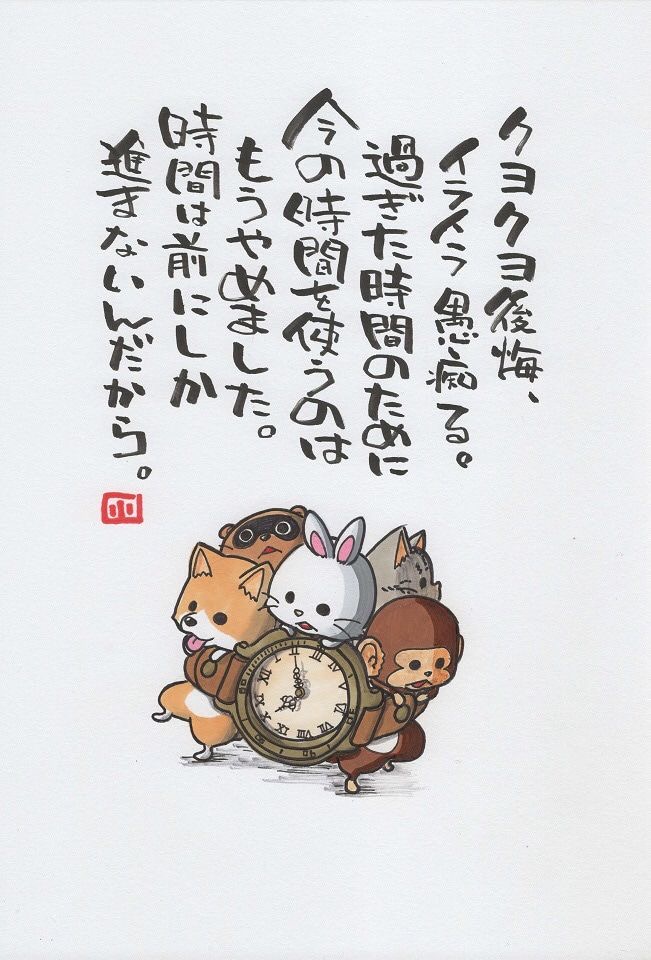 クヨクヨ後悔、
イライラ愚痴る。
過ぎた時間のために
今の時間を使うのは
もうやめました。
時間は前にしか
進まないんだから。